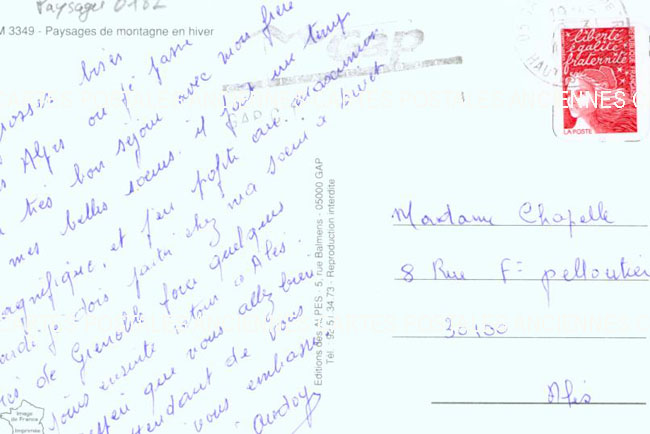 Paysages 0182
M 3349 - Paysages de montagne en hiver
GAP
liberté
égalité
fraternité
LA POSTE
bises
Alpes où je passe
très bon séjour avec mon frère
mes belles soeurs. il fait un temps
magnifique, et j'en profite au maximum
je dois partir chez ma soeur à
de Grenoble pour quelques
jours ensuite retour à Alès.
que vous allez bien
attendant de vous
vous embrasse
Editions des ALPES - 5, rue Balmens - 05000 GAP
Tel. 92 51 34 73 - Reproduction interdite
Madame Chapelle
8 Rue F= pelloutier
30100
Alès
Image de France
Imprimée
CARTES POSTALES ANCIENNES